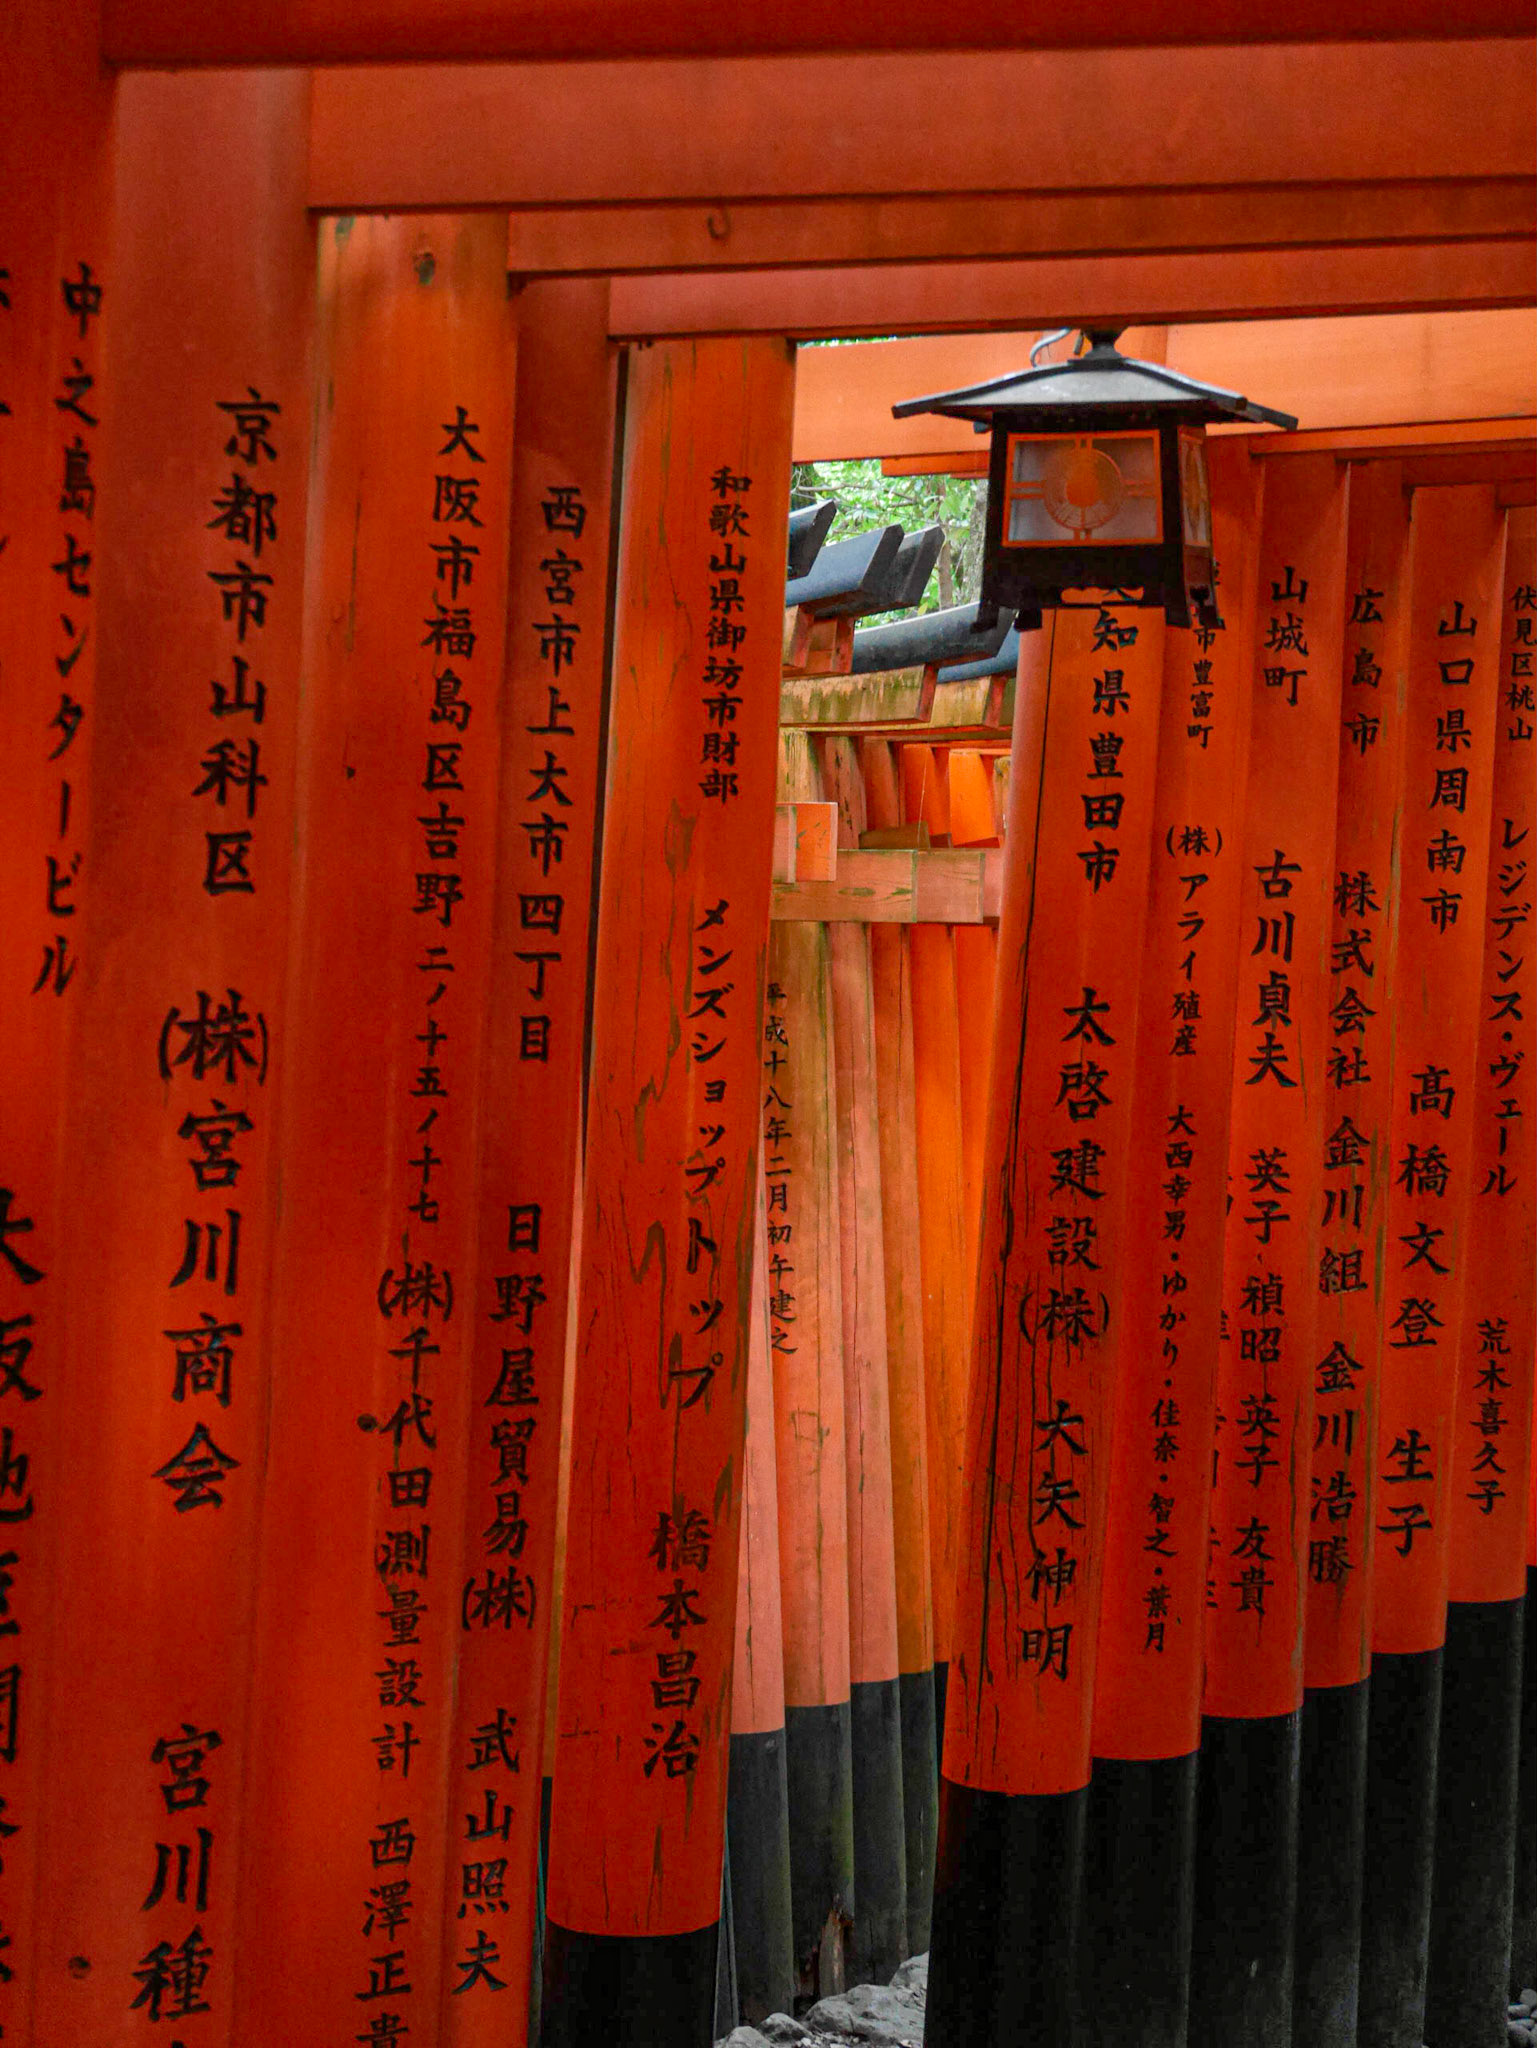 中之島センタービル
京都市山科区 (株)宮川商会 宮川種
大阪市福島区吉野二ノ十五ノ十七 (株)千代田測量設計 西澤正貴
西宮市上大市四丁目 日野屋貿易(株) 武山照夫
和歌山県御坊市財部 メンズショップトップ 橋本昌治
平成十八年二月初午建之
知県豊田市 太啓建設(株) 大矢伸明
市豊富町 (株)アライ殖産 大西幸男・ゆかり・佳奈・智之・葉月
山城町 古川貞夫 英子 禎昭 英子 友貴
広島市 株式会社金川組 金川浩勝
山口県周南市 髙橋文登 生子
伏見区桃山 レジデンス・ヴェール 荒木喜久子